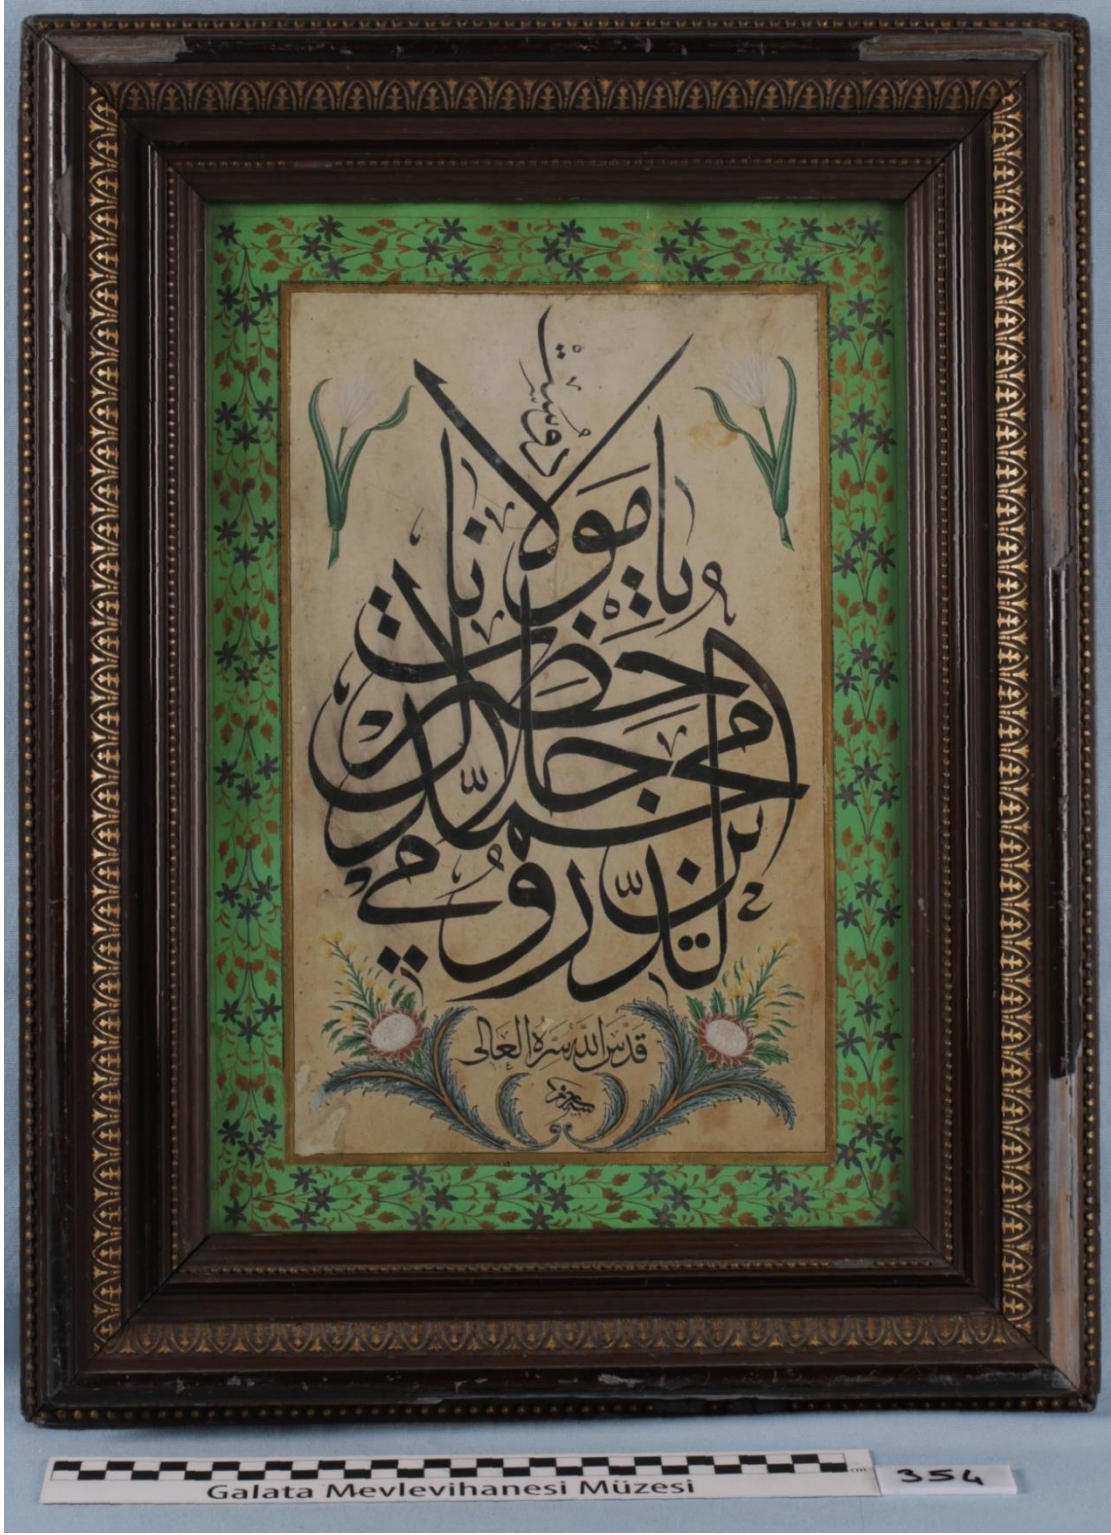 دوست
يا حضرت مولانا
محمد جلال الدين
الرومي
قدس الله سره العالى
Galata Mevlevihanesi Müzesi
cm
354